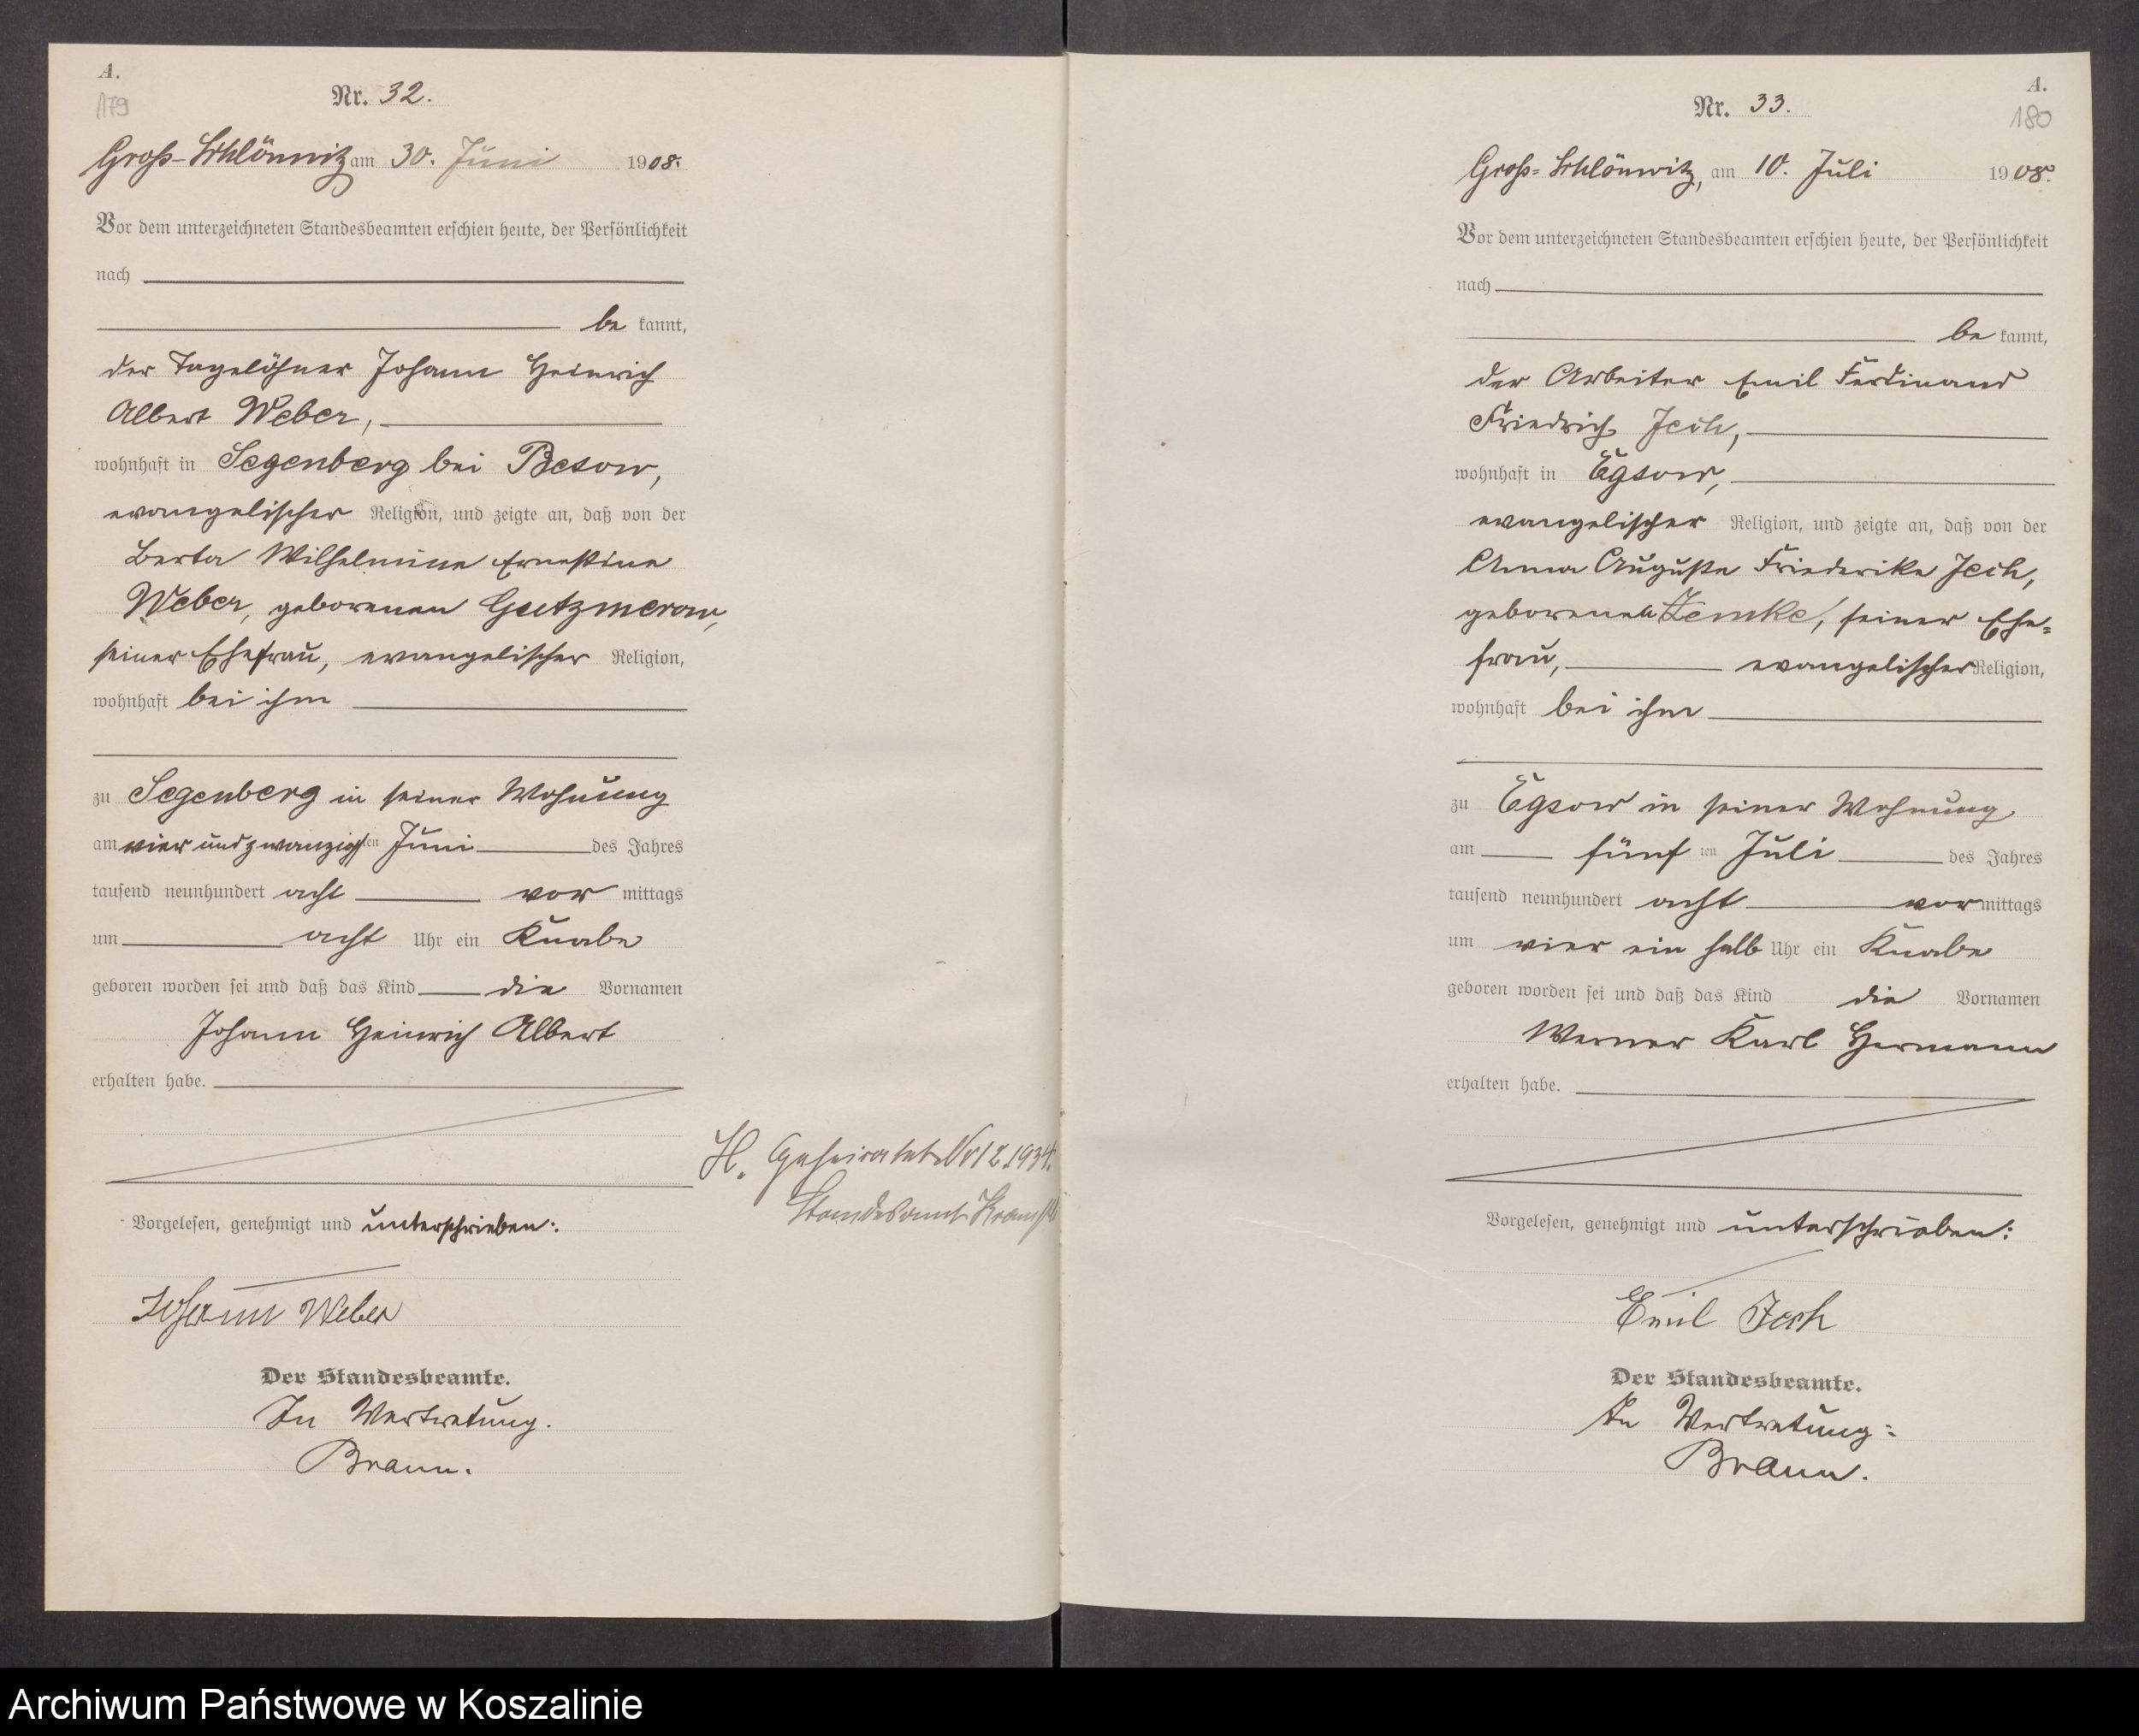 A.
179
Nr. 32.
Groß-Schlönwitz am 30. Juni 1908.
Vor dem unterzeichneten Standesbeamten erschien heute, der Persönlichkeit
nach
be kannt,
der Tagelöhner Johann Heinrich
Albert Weber,
wohnhaft in Segenberg bei Besow,
evangelischer Religion, und zeigte an, daß von der
Berta Wilhelmine Ernestine
Weber, geborenen Gutzmerow,
seiner Ehefrau, evangelischer Religion,
wohnhaft bei ihm
zu Segenberg in seiner Wohnung
am vier und zwanzigsten Juni des Jahres
tausend neunhundert acht vor mittags
um acht Uhr ein Knabe
geboren worden sei und daß das Kind die Vornamen
Johann Heinrich Albert
erhalten habe.
H. Geheiratet Nr 12 1934.
Standesamt
Vorgelesen, genehmigt und unterschrieben:
Johann Weber
Der Standesbeamte.
In Vertretung.
Braun.
A.
180
Nr. 33.
Groß-Schlönwitz, am 10. Juli 1908.
Vor dem unterzeichneten Standesbeamten erschien heute, der Persönlichkeit
nach
be kannt,
der Arbeiter Emil Ferdinand
Friedrich Jech,
wohnhaft in Egsow,
evangelischer Religion, und zeigte an, daß von der
Anna Auguste Friederike Jech,
geborenen Zemke, seiner Ehe-
frau, evangelischer Religion,
wohnhaft bei ihm
zu Egsow in seiner Wohnung
am fünf ten Juli des Jahres
tausend neunhundert acht vor mittags
um vier ein halb Uhr ein Knabe
geboren worden sei und daß das Kind die Vornamen
Werner Karl Hermann
erhalten habe.
Vorgelesen, genehmigt und unterschrieben:
Emil Jech
Der Standesbeamte.
In Vertretung:
Braun.
Archiwum Państwowe w Koszalinie